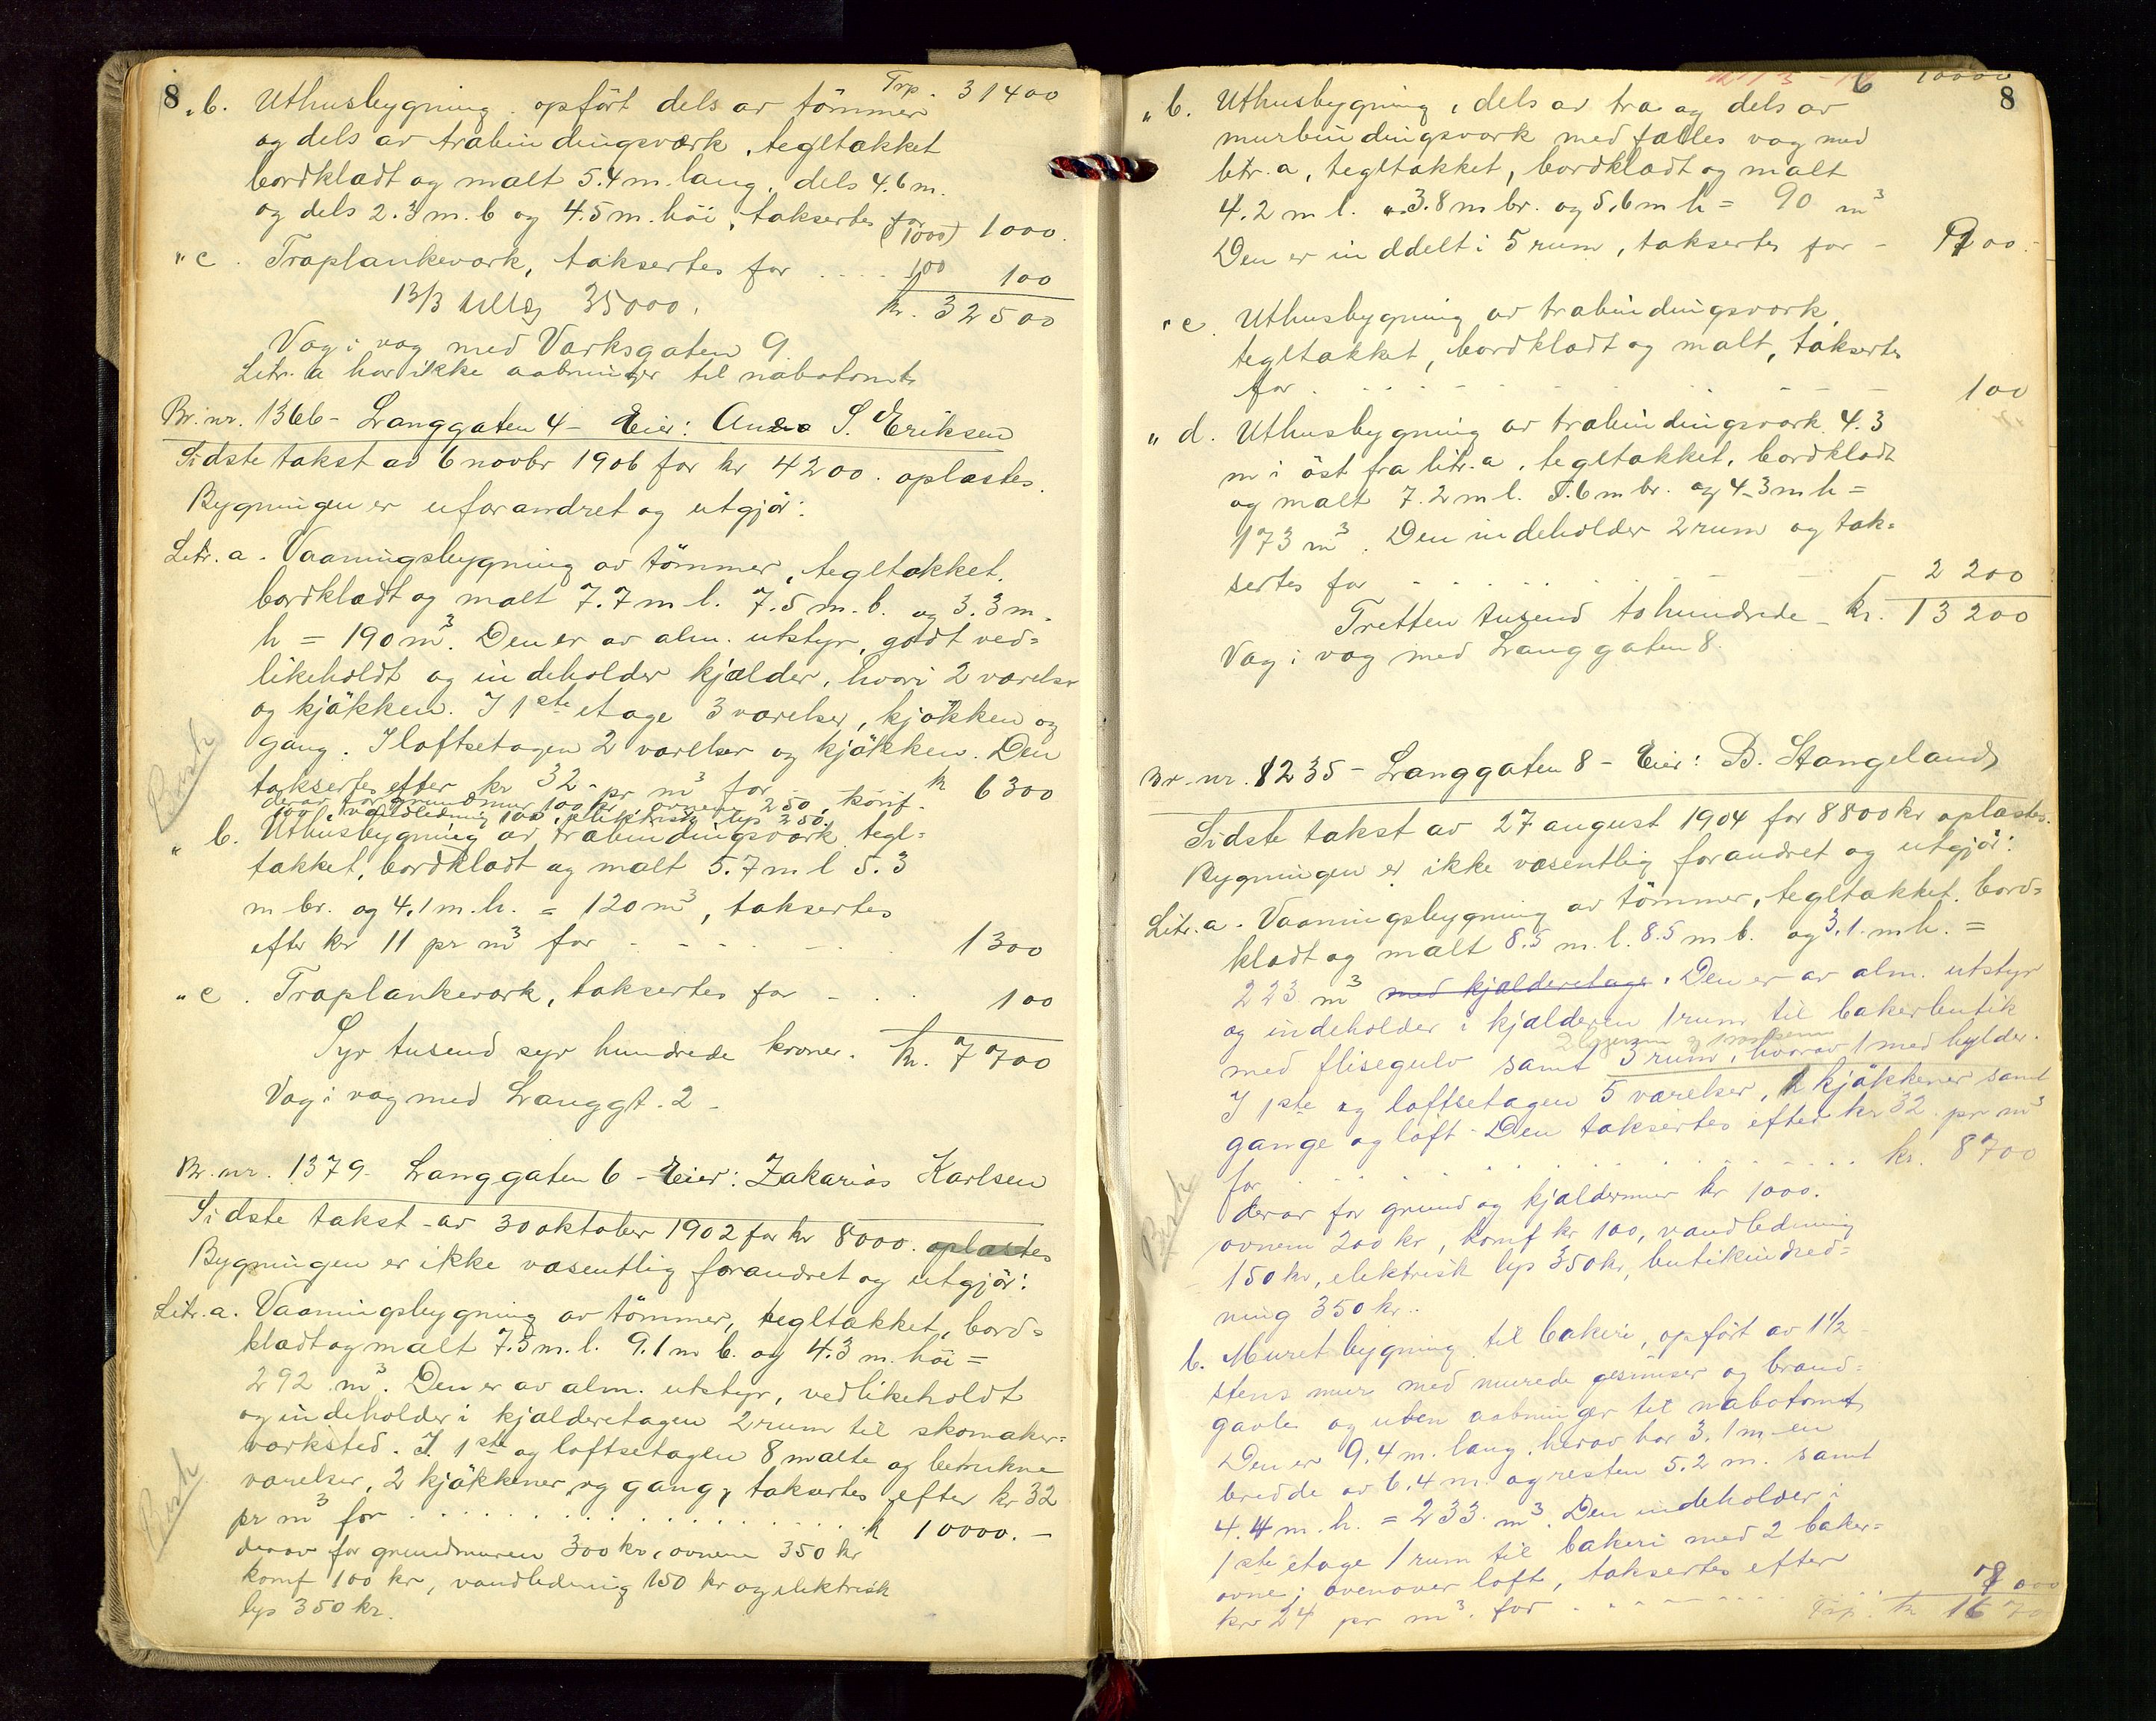 8
Trp. 31400
„ b. Uthusbygning opført dels av tömmer
og dels av træbindingsværk, tegltækket
bordklædt og malt 5.4 m. lang, dels 4.6 m.
og dels 2.3 m. b og 4.5 m. höi, taksertes for
(1000) 1000.
„ c. Træplankeværk, taksertes for .... 100 100
13/3 tillæg 35000. kr. 32500
Væg i væg med Værksgaten 9.
Litr. a har ikke aabninger til nabotomt
Br. nr. 1366 - Langgaten 4 - Eier: S. Eriksen
Sidste takst av 6 novbr 1906 for kr 4200. oplæstes.
Bygningen er uforandret og utgjör:
Litr. a. Vaaningsbygning av tömmer, tegltækket,
bordklædt og malt 7.7 m l. 7.5 m. b. og 3.3 m.
h = 190 m³. Den er av alm. utstyr, godt ved=
likeholdt og indeholder kjælder, hvori 2 værelser
og kjökken. I 1ste etage 3 værelser, kjökken og
gang. I loftsetagen 2 værelser og kjökken. Den
taksertes efter kr 32 - pr m³ for kr 6300
derav for grundmur 100 kr, ovnene 250, komf.
100, vandledning 100, elektrisk lys 250.
„ b. Uthusbygning av træbindingsværk, tegl=
tækket, bordklædt og malt 5.7 m l 5.3
m br. og 4.1 m. h. = 120 m³, taksertes
efter kr 11 pr m³ for - - - - 1300
„ c. Træplankeværk, taksertes for - . . 100
Syv tusend syv hundrede kroner. kr. 7700
Væg i væg med Langgt. 2 -
Br. nr. 1379 - Langgaten 6 - Eier: Zakarias Karlsen
Sidste takst av 30 oktober 1902 for kr 8000. oplæstes
Bygningen er ikke væsentlig forandret og utgjör:
Litr. a. Vaaningsbygning av tömmer, tegltækket, bord=
klædt og malt 7.5 m. l. 9.1 m b. og 4.3 m. höi =
292 m³. Den er av alm. utstyr, vedlikeholdt
og indeholder i kjælderetagen 2 rum til skomaker=
værksted. I 1ste og loftsetagen 8 malte og betrukne
værelser, 2 kjökkener og gang, taksertes efter kr 32
pr m³ for . . . . . . . . kr 10000. -
derav for grundmuren 300 kr, ovnene 350 kr
komf 100 kr, vandledning 150 kr og elektrisk
lys 350 kr.
10000
8
„ b. Uthusbygning, dels av træ og dels av
murbindingsværk med fælles væg med
litr. a, tegltækket, bordklædt og malt
4.2 m l. 3.8 m br. og 5.6 m h = 90 m³
Den er inddelt i 5 rum, taksertes for -
„ c. Uthusbygning av træbindingsværk,
tegltækket, bordklædt og malt, taksertes
for . - - - - - 100
„ d. Uthusbygning av træbindingsværk 4.3
m i öst fra litr. a, tegltækket, bordklædt
og malt 7.2 m l. 5.6 m br. og 4.3 m h =
173 m³. Den indeholder 2 rum og tak=
sertes for - - - - - 2200
Tretten tusend tohundrede - kr. 13200
Væg i væg med Langgaten 8.
Br. nr. 1235 - Langgaten 8 - Eier: B. Stangeland
Sidste takst av 27 august 1904 for 8800 kr oplæstes.
Bygningen er ikke væsentlig forandret og utgjör:
Litr. a. Vaaningsbygning av tömmer, tegltækket, bord=
klædt og malt 8.5 m. l. 8.5 m b. og 3.1. m h. =
223 m³ med kjælderetage. Den er av alm. utstyr
og indeholder i kjælderen 1 rum til bakerbutik
med flisegulv samt 3 rum, hvorav 1 med hylder.
I 1ste og loftsetagen 5 værelser, 2 kjökkener samt
gange og loft - Den taksertes efter kr 32 pr m³
for . . . . . . . . kr. 8700
derav for grund og kjældermur kr 1000.
ovnene 200 kr, komf kr 100, vandledning
150 kr, elektrisk lys 350 kr, butikindred=
ning 350 kr..
b. Muret bygning til bakeri, opført av 1½
stens mur med murede gesimser og brand=
gavle og uten aabninger til nabotomt
Den er 9.4 m. lang, herav har 3.1 m en
bredde av 6.4 m. og resten 5.2 m. samt
4.4 m. h. = 233 m³. Den indeholder i
1ste etage 1 rum til bakeri med 2 baker=
ovne; ovenover loft, taksertes efter
kr 24 pr m³. for - - - - -
Trp. kr